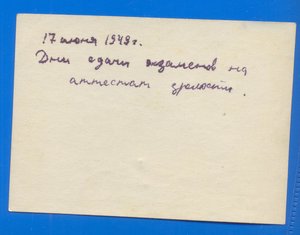 17 июня 1949 г.
Дни сдачи экзаменов на
аттестат зрелости.